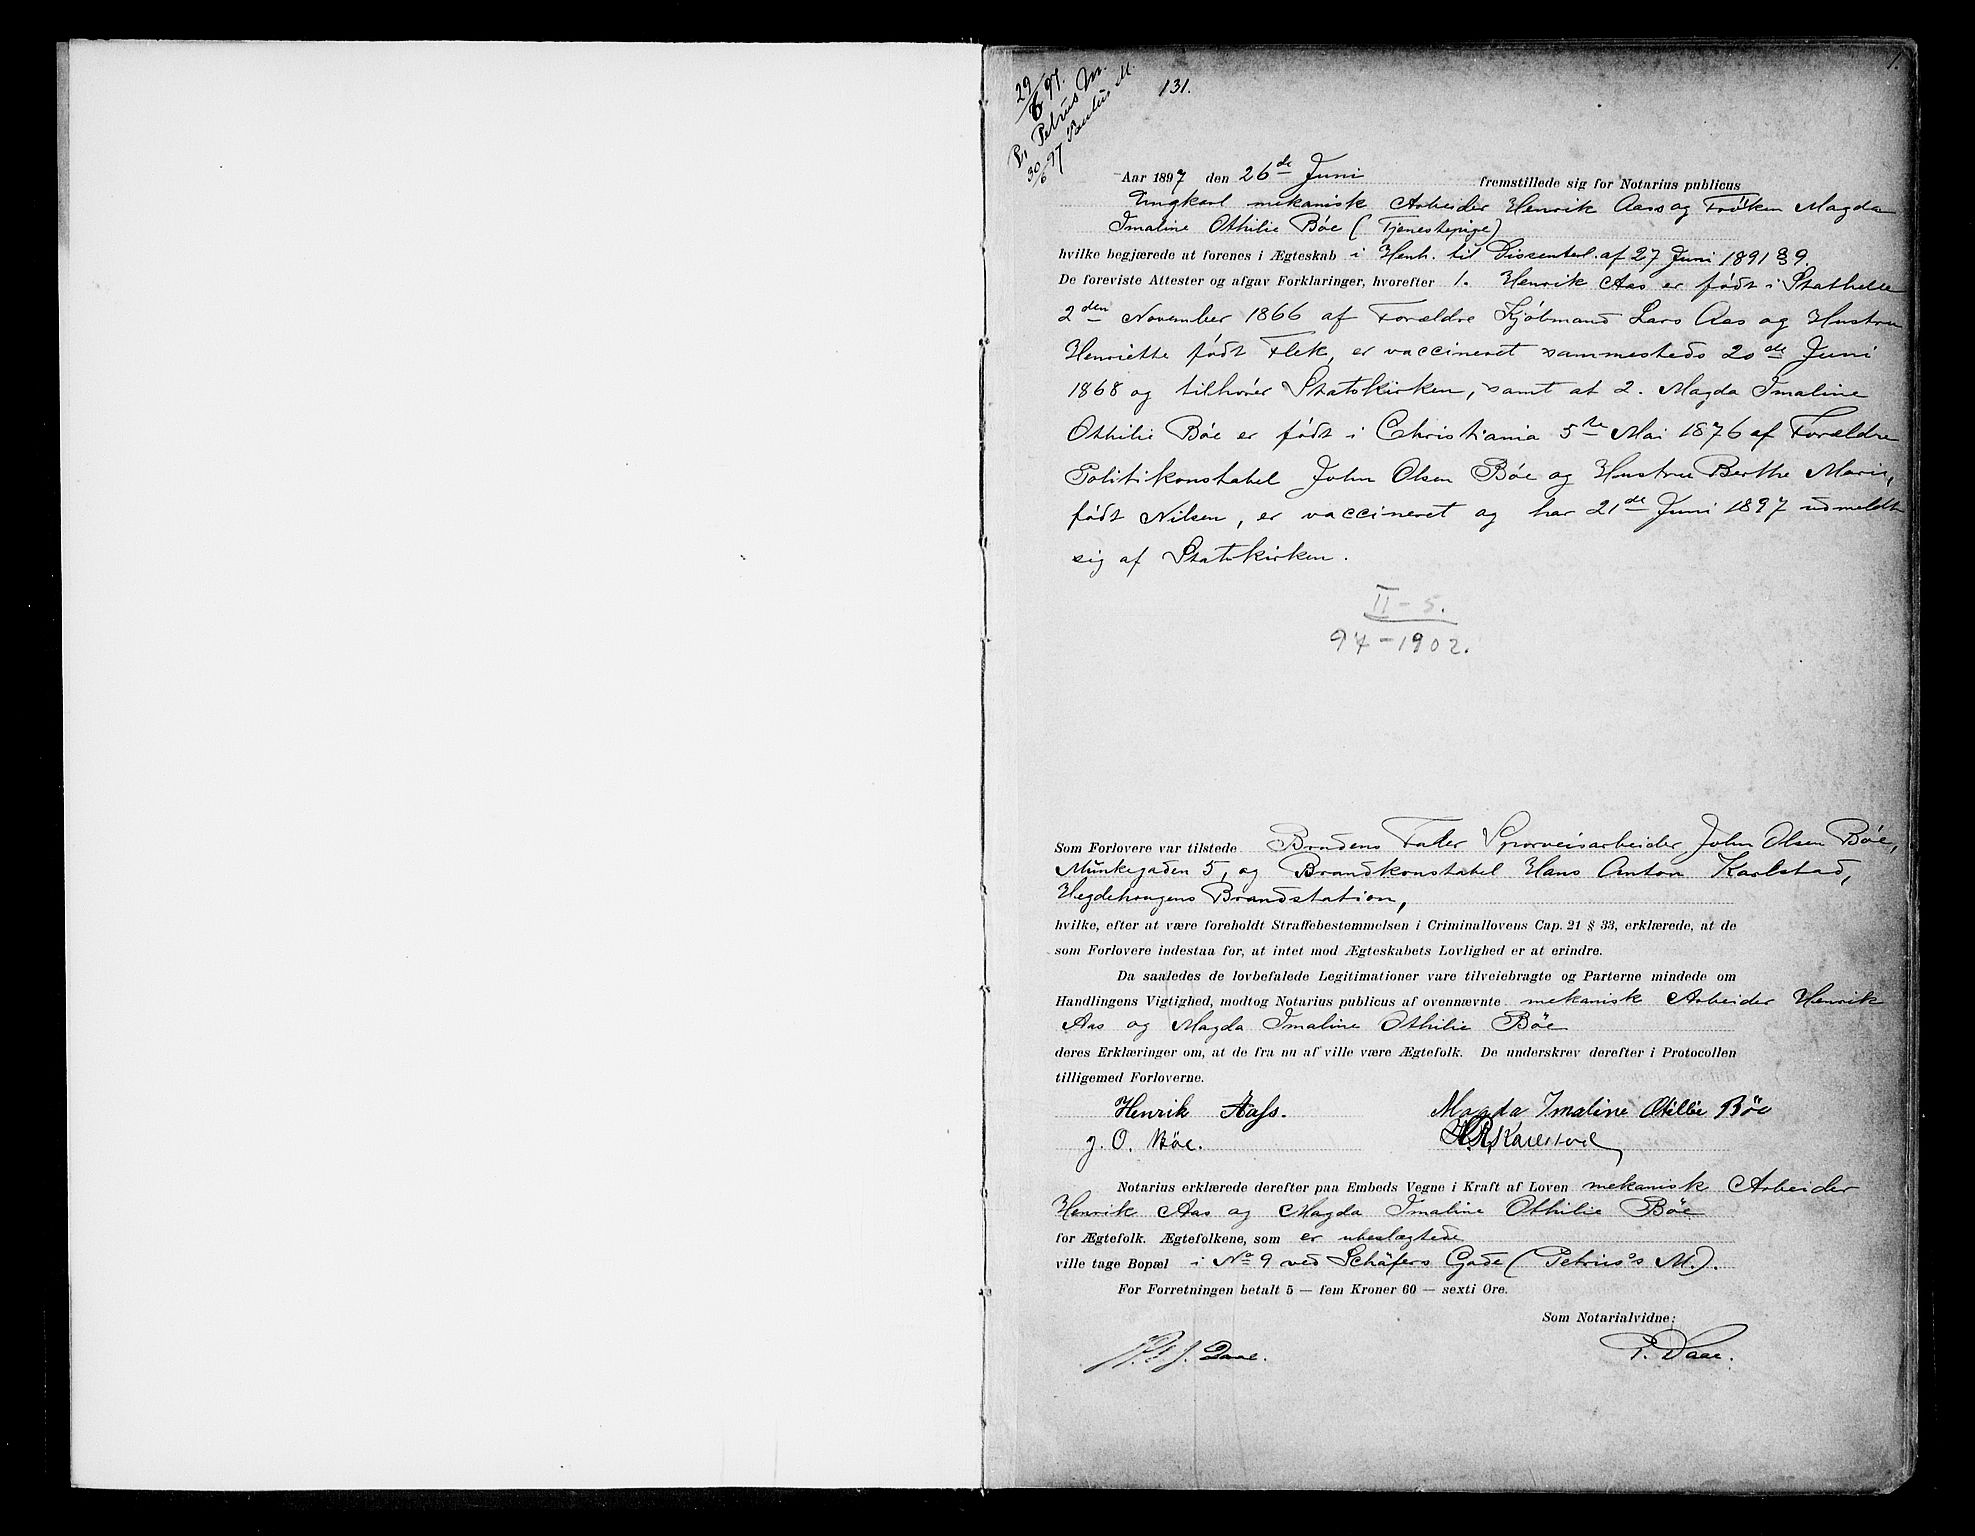 1.
29/6 97.
P. Petrus M.
30/6 97 Paulus M.
131.
Aar 1897 den 26de Juni fremstillede sig for Notarius publicus
Ungkarl mekanisk Arbeider Henrik Aas og Frøken Magda
Imaline Othilie Bøe (Tjenestepige)
hvilke begjærede at forenes i Ægteskab i Henh. til Dissenterl. af 27 Juni 1891 § 9.
De foreviste Attester og afgav Forklaringer, hvorefter 1. Henrik Aas er født i Stathelle
2den November 1866 af Forældre Kjøbmand Lars Aas og Hustru
Henriette født Flek, er vaccineret sammesteds 20de Juni
1868 og tilhører Statskirken, samt at 2. Magda Imaline
Othilie Bøe er født i Christiania 5te Mai 1876 af Forældre
Politikonstabel John Olsen Bøe og Hustru Berthe Marie,
født Nilsen, er vaccineret og har 21de Juni 1897 udmeldt
sig af Statskirken.
II-5.
97-1902.
Som Forlovere var tilstede Brudens Fader Sporveisarbeider John Olsen Bøe,
Munkegaden 5, og Brandkonstabel Hans Anton Karlstad,
Hegdehaugens Brandstation,
hvilke, efter at være foreholdt Straffebestemmelsen i Criminallovens Cap. 21 § 33, erklærede, at de
som Forlovere indestaa for, at intet mod Ægteskabets Lovlighed er at erindre.
Da saaledes de lovbefalede Legitimationer vare tilveiebragte og Parterne mindede om
Handlingens Vigtighed, modtog Notarius publicus af ovennævnte mekanisk Arbeider Henrik
Aas og Magda Imaline Othilie Bøe
deres Erklæringer om, at de fra nu af ville være Ægtefolk. De underskrev derefter i Protocollen
tilligemed Forloverne.
Henrik Aass. Magda Imaline Otillie Bøe
J. O. Bøe. Karlstad
Notarius erklærede derefter paa Embeds Vegne i Kraft af Loven mekanisk Arbeider
Henrik Aas og Magda Imaline Othilie Bøe
for Ægtefolk. Ægtefolkene, som er ubeslægtede
ville tage Bopæl i No 9 ved Schäfers Gade (Petrus's M.).
For Forretningen betalt 5 — fem Kroner 60 — sexti Øre.
Som Notarialvidne:
Daae. P. Daae.